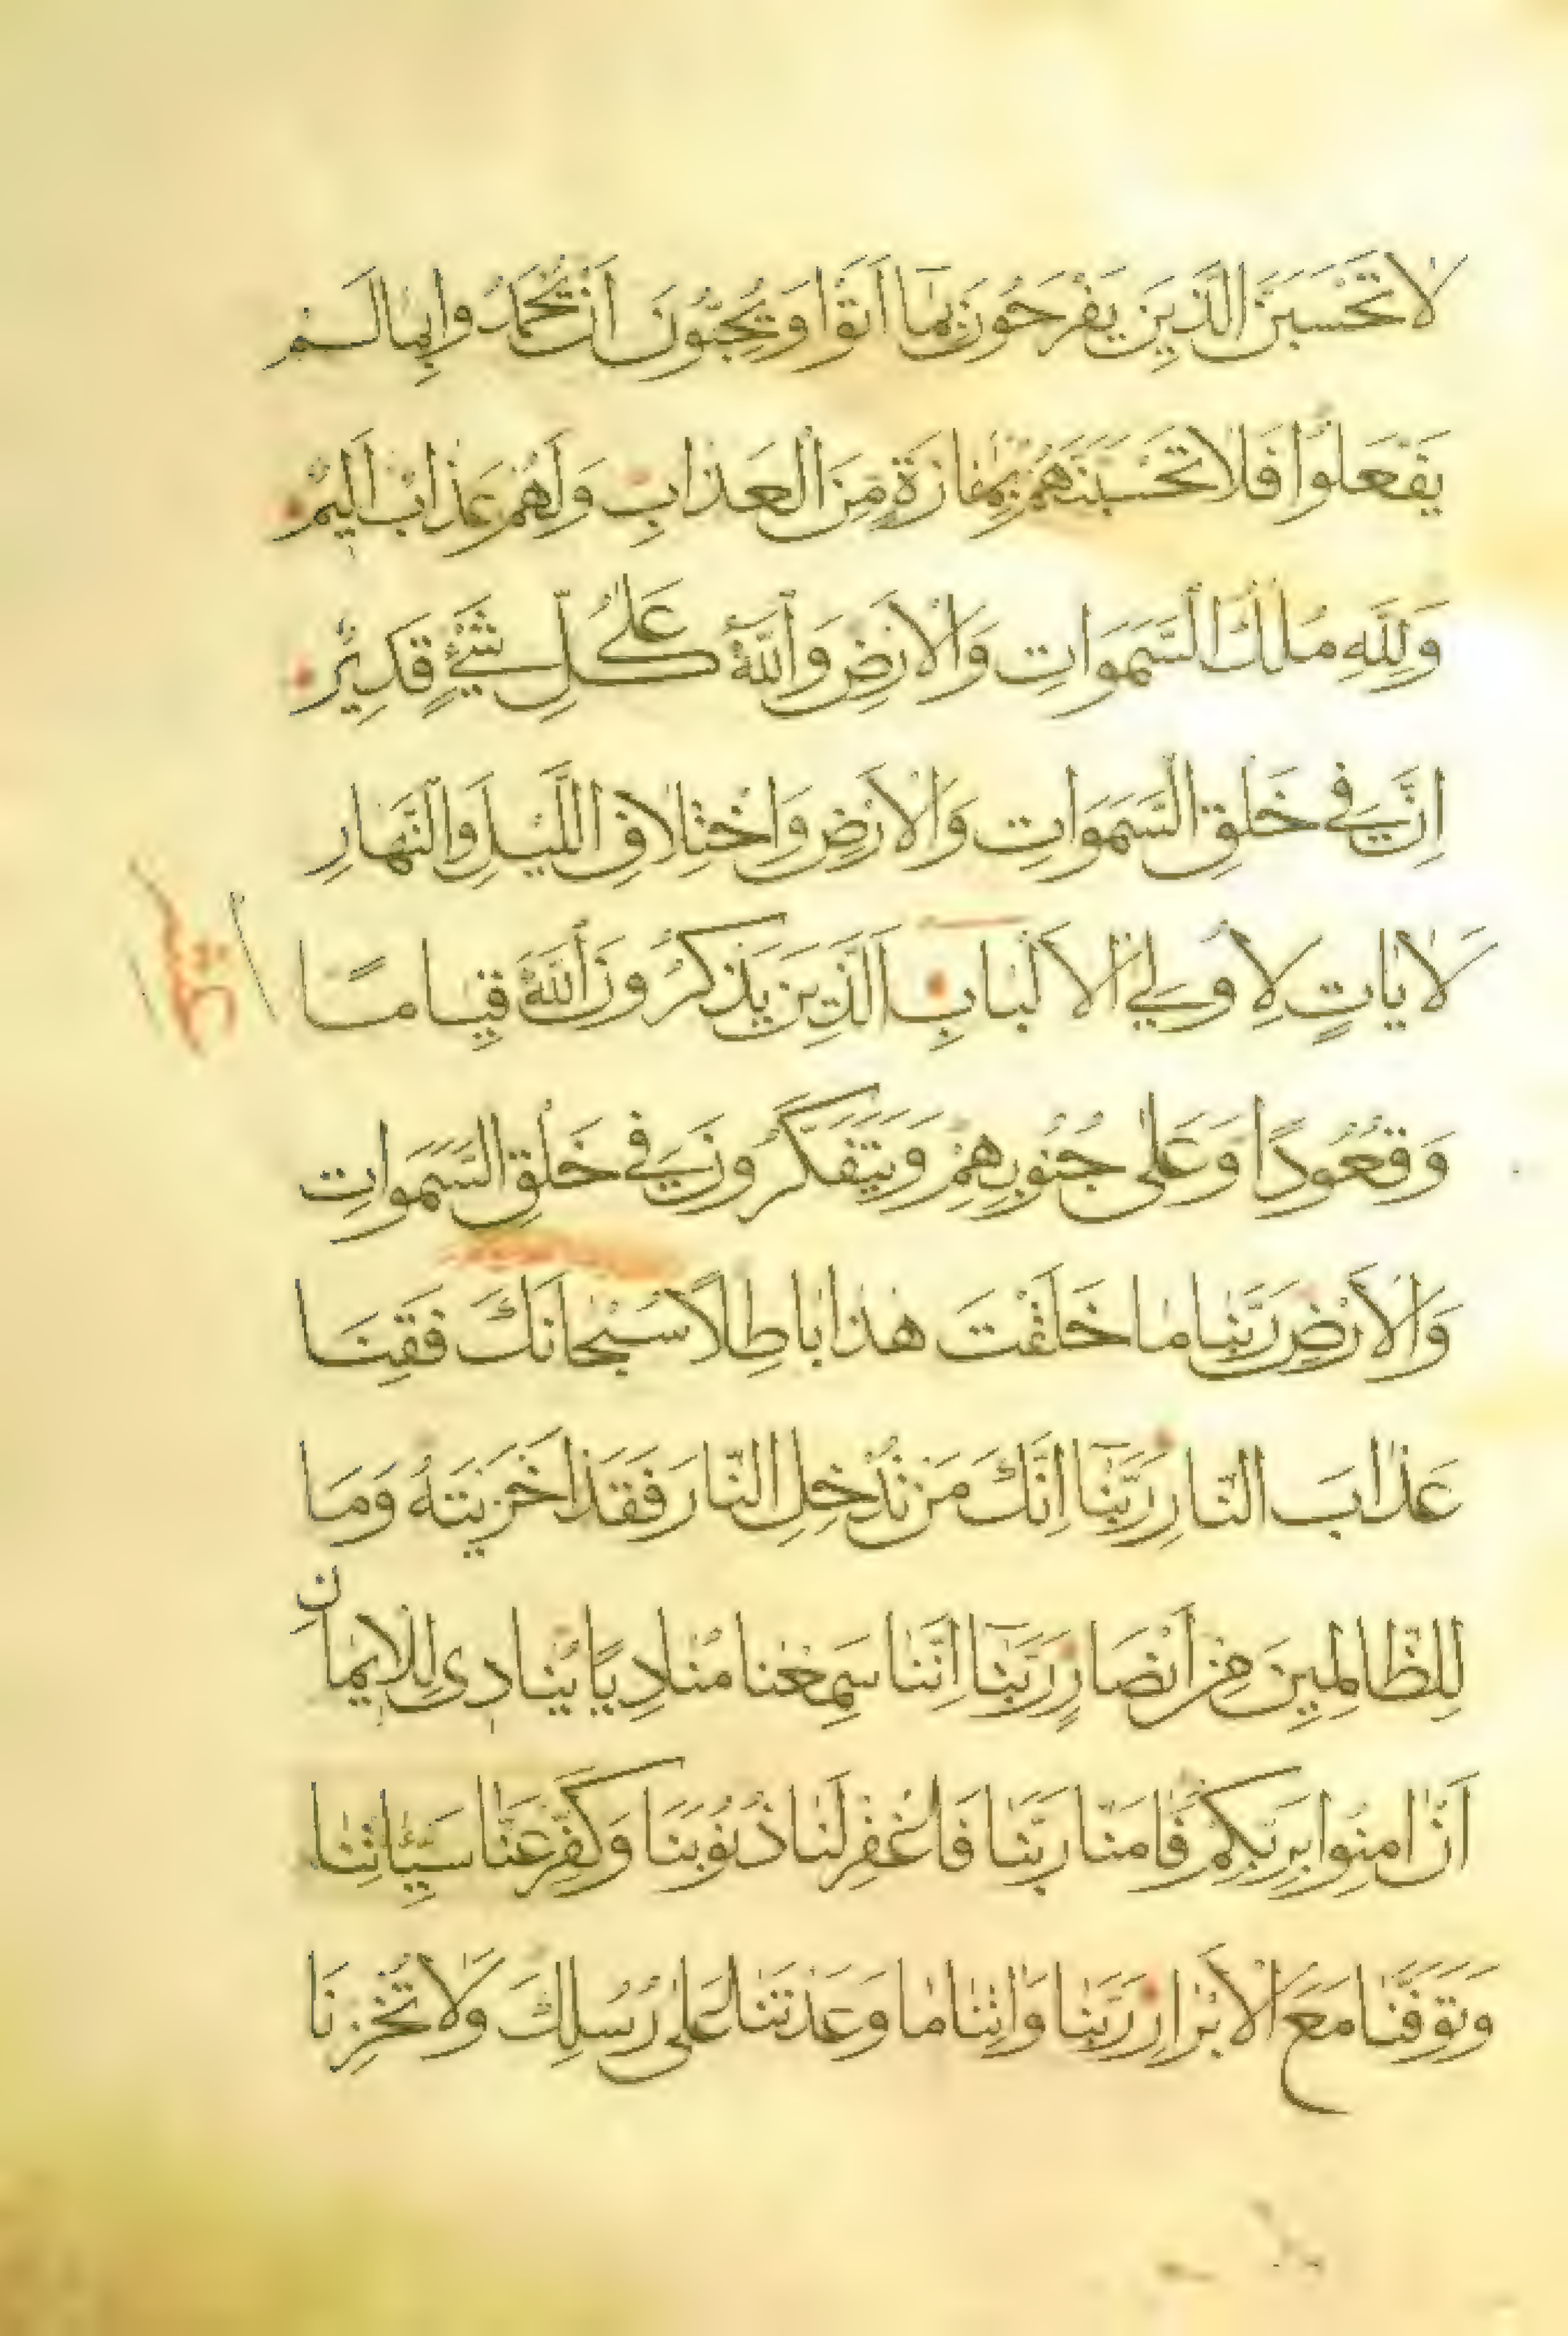 لَا تَحْسَبَنَّ الَّذِينَ يَفْرَحُونَ بِمَا اَتَوْا وَيُحِبُّونَ اَنْ يُحْمَدُوا بِمَا لَمْ
يَفْعَلُوا فَلَا تَحْسَبَنَّهُمْ بِمَفَازَةٍ مِنَ الْعَذَابِ وَلَهُمْ عَذَابٌ اَلِيمٌ
وَلِلّٰهِ مُلْكُ السَّمَوَاتِ وَالْاَرْضِ وَاللّٰهُ عَلٰى كُلِّ شَيْءٍ قَدِيرٌ
اِنَّ فِي خَلْقِ السَّمَوَاتِ وَالْاَرْضِ وَاخْتِلَافِ اللَّيْلِ وَالنَّهَارِ
لَاٰيَاتٍ لِاُولِي الْاَلْبَابِ الَّذِينَ يَذْكُرُونَ اللّٰهَ قِيَامًا
وَقُعُودًا وَعَلٰى جُنُوبِهِمْ وَيَتَفَكَّرُونَ فِي خَلْقِ السَّمَوَاتِ
وَالْاَرْضِ رَبَّنَا مَا خَلَقْتَ هٰذَا بَاطِلًا سُبْحَانَكَ فَقِنَا
عَذَابَ النَّارِ رَبَّنَا اِنَّكَ مَنْ تُدْخِلِ النَّارَ فَقَدْ اَخْزَيْتَهُ وَمَا
لِلظَّالِمِينَ مِنْ اَنْصَارٍ رَبَّنَا اِنَّنَا سَمِعْنَا مُنَادِيًا يُنَادِى لِلْاِيمَانِ
اَنْ اٰمِنُوا بِرَبِّكُمْ فَاٰمَنَّا رَبَّنَا فَاغْفِرْ لَنَا ذُنُوبَنَا وَكَفِّرْ عَنَّا سَيِّئَاتِنَا
وَتَوَفَّنَا مَعَ الْاَبْرَارِ رَبَّنَا وَاٰتِنَا مَا وَعَدْتَنَا عَلٰى رُسُلِكَ وَلَا تُخْزِنَا